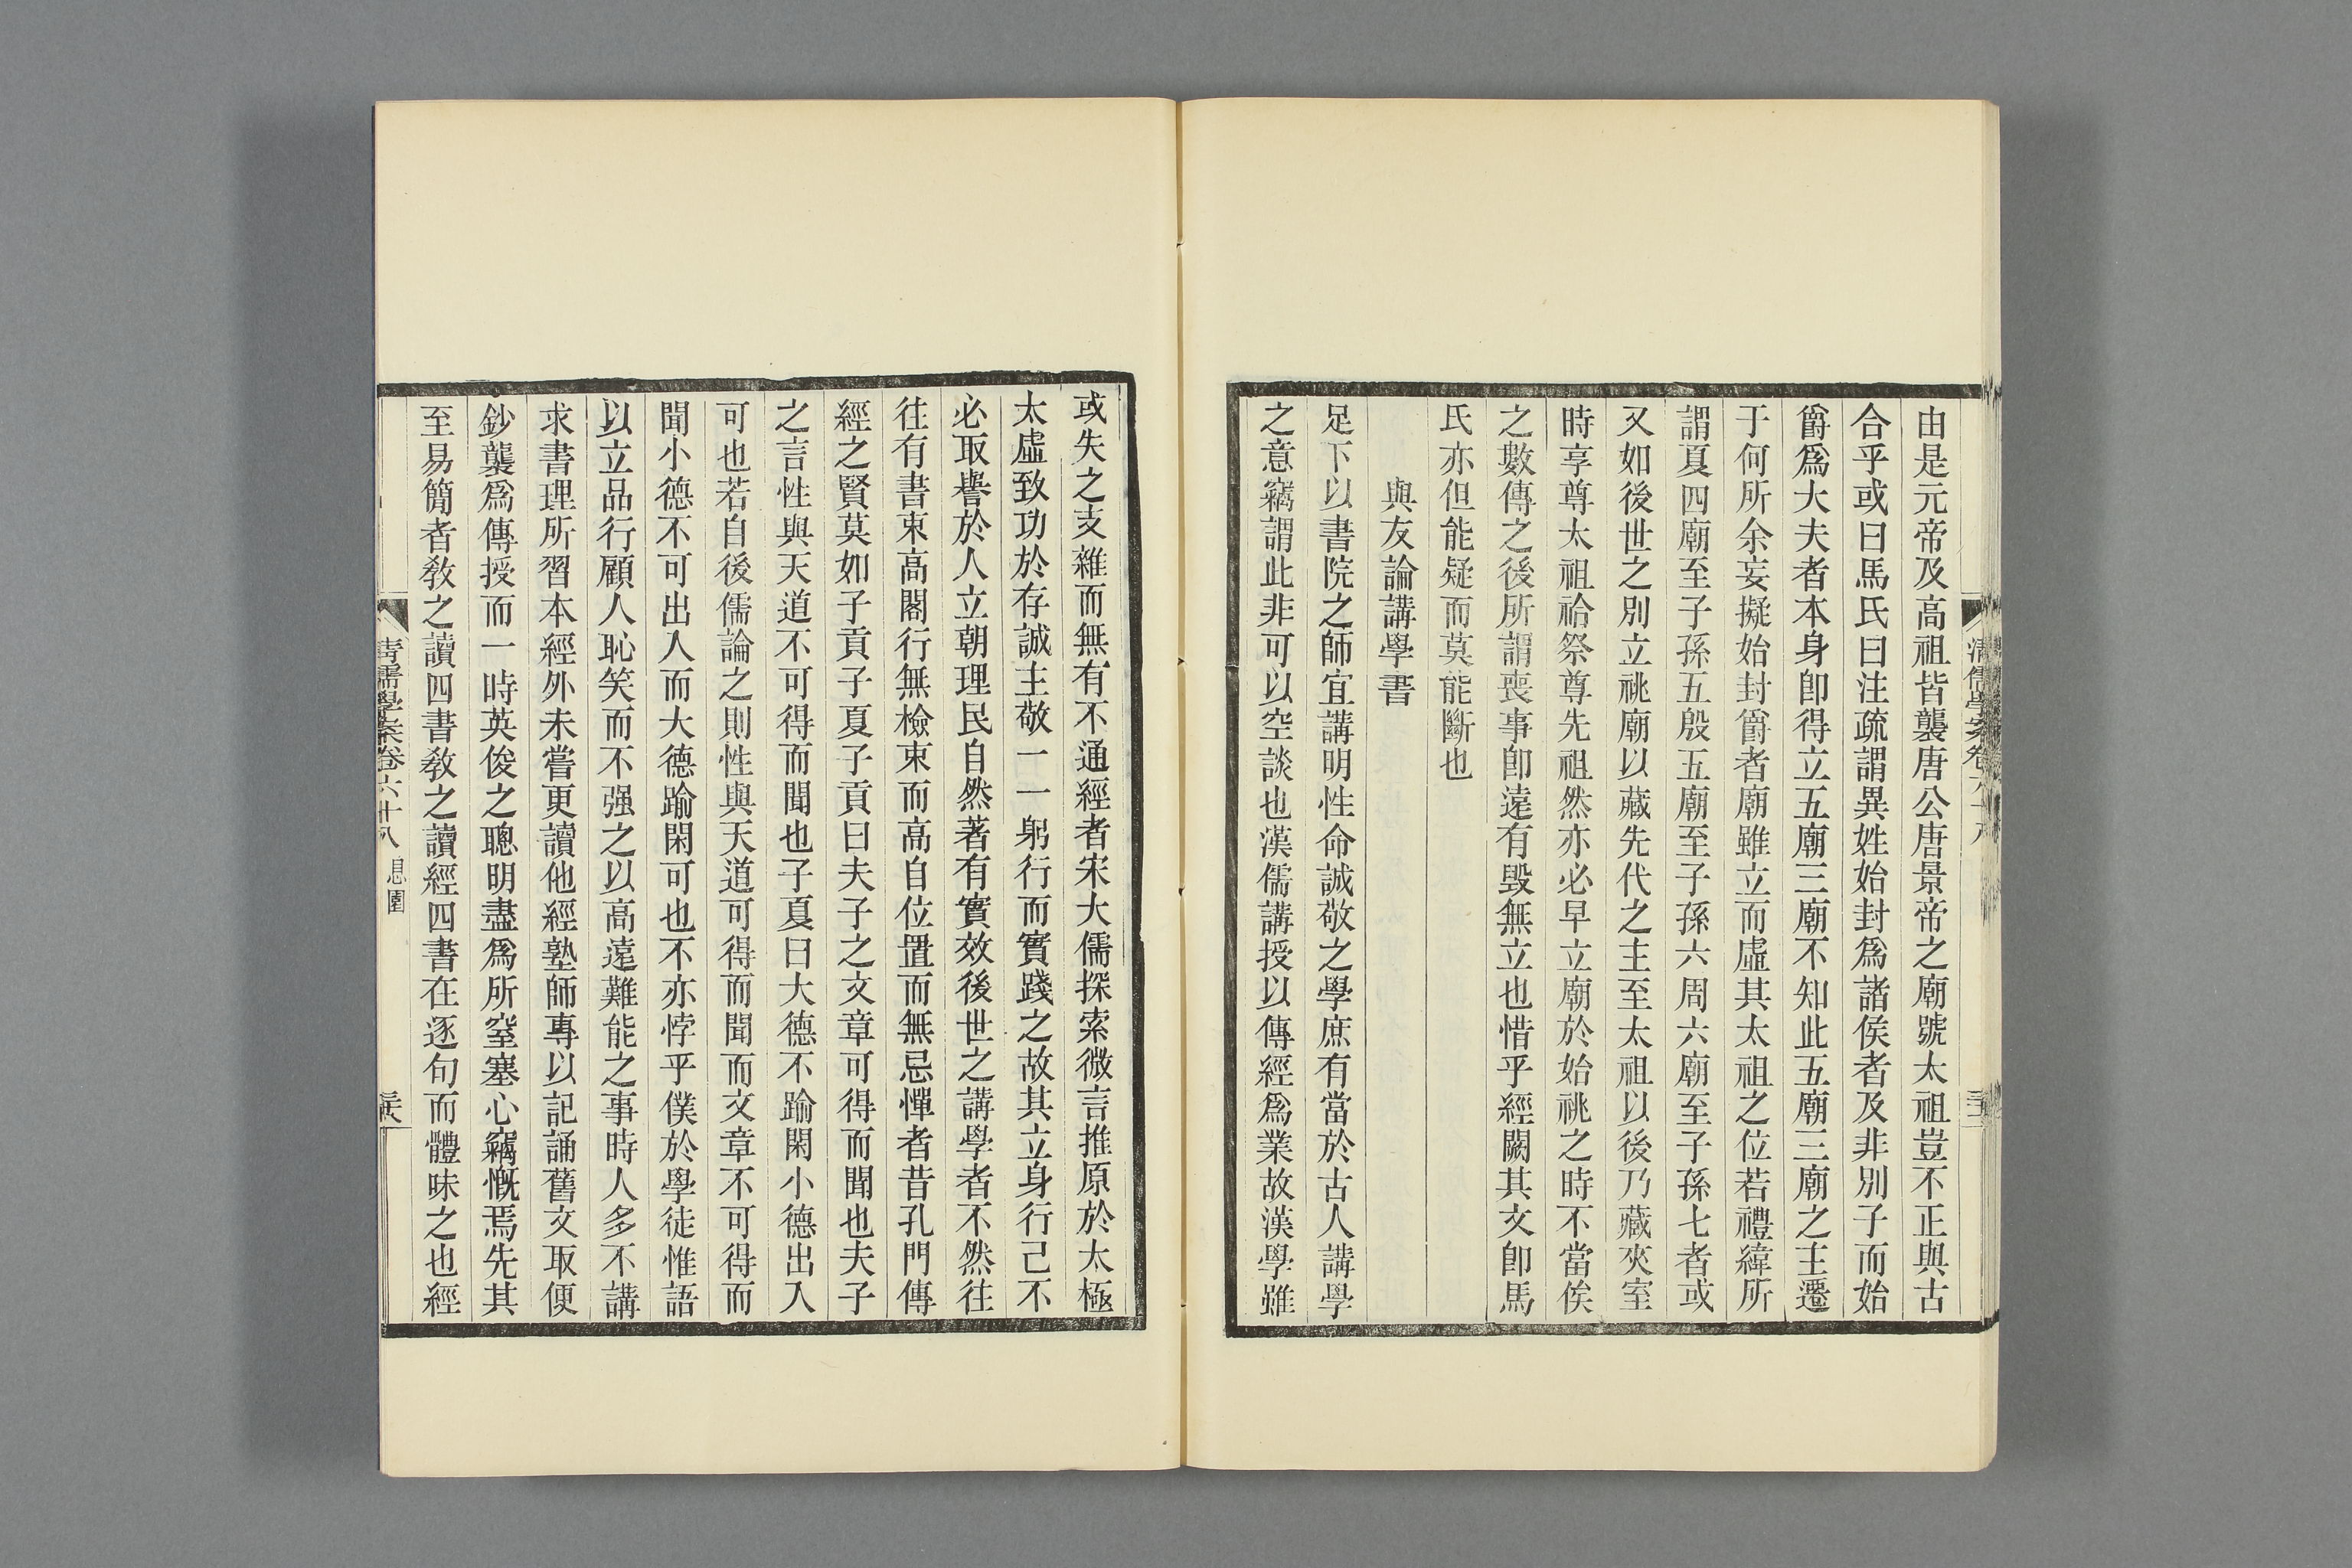 由是元帝及高祖皆襲唐公唐景帝之廟號太祖豈不正與古
合乎或曰馬氏曰注疏謂異姓始封爲諸侯者及非別子而始
爵爲大夫者本身卽得立五廟三廟不知此五廟三廟之主遷
于何所余妄擬始封爵者廟雖立而虛其太祖之位若禮緯所
謂夏四廟至子孫五殷五廟至子孫六周六廟至子孫七者或
又如後世之別立祧廟以藏先代之主至太祖以後乃藏夾室
時享尊太祖祫祭尊先祖然亦必早立廟於始祧之時不當俟
之數傳之後所謂喪事卽遠有毀無立也惜乎經闕其文卽馬
氏亦但能疑而莫能斷也
與友論講學書
足下以書院之師宜講明性命誠敬之學庶有當於古人講學
之意竊謂此非可以空談也漢儒講授以傳經爲業故漢學雖
或失之支雜而無有不通經者宋大儒探索微言推原於太極
太虛致功於存誠主敬一一躬行而實踐之故其立身行己不
必取譽於人立朝理民自然著有實效後世之講學者不然往
往有書束高閣行無檢束而高自位置而無忌憚者昔孔門傳
經之賢莫如子貢子夏子貢曰夫子之文章可得而聞也夫子
之言性與天道不可得而聞也子夏曰大德不踰閑小德出入
可也若自後儒論之則性與天道可得而聞而文章不可得而
聞小德不可出入而大德踰閑可也不亦悖乎僕於學徒惟語
以立品行顧人恥笑而不强之以高遠難能之事時人多不講
求書理所習本經外未嘗更讀他經塾師專以記誦舊文取便
鈔襲爲傳授而一時英俊之聰明盡爲所窒塞心竊慨焉先其
至易簡者敎之讀四書敎之讀經四書在逐句而體味之也經
清儒學案卷六十八 息園